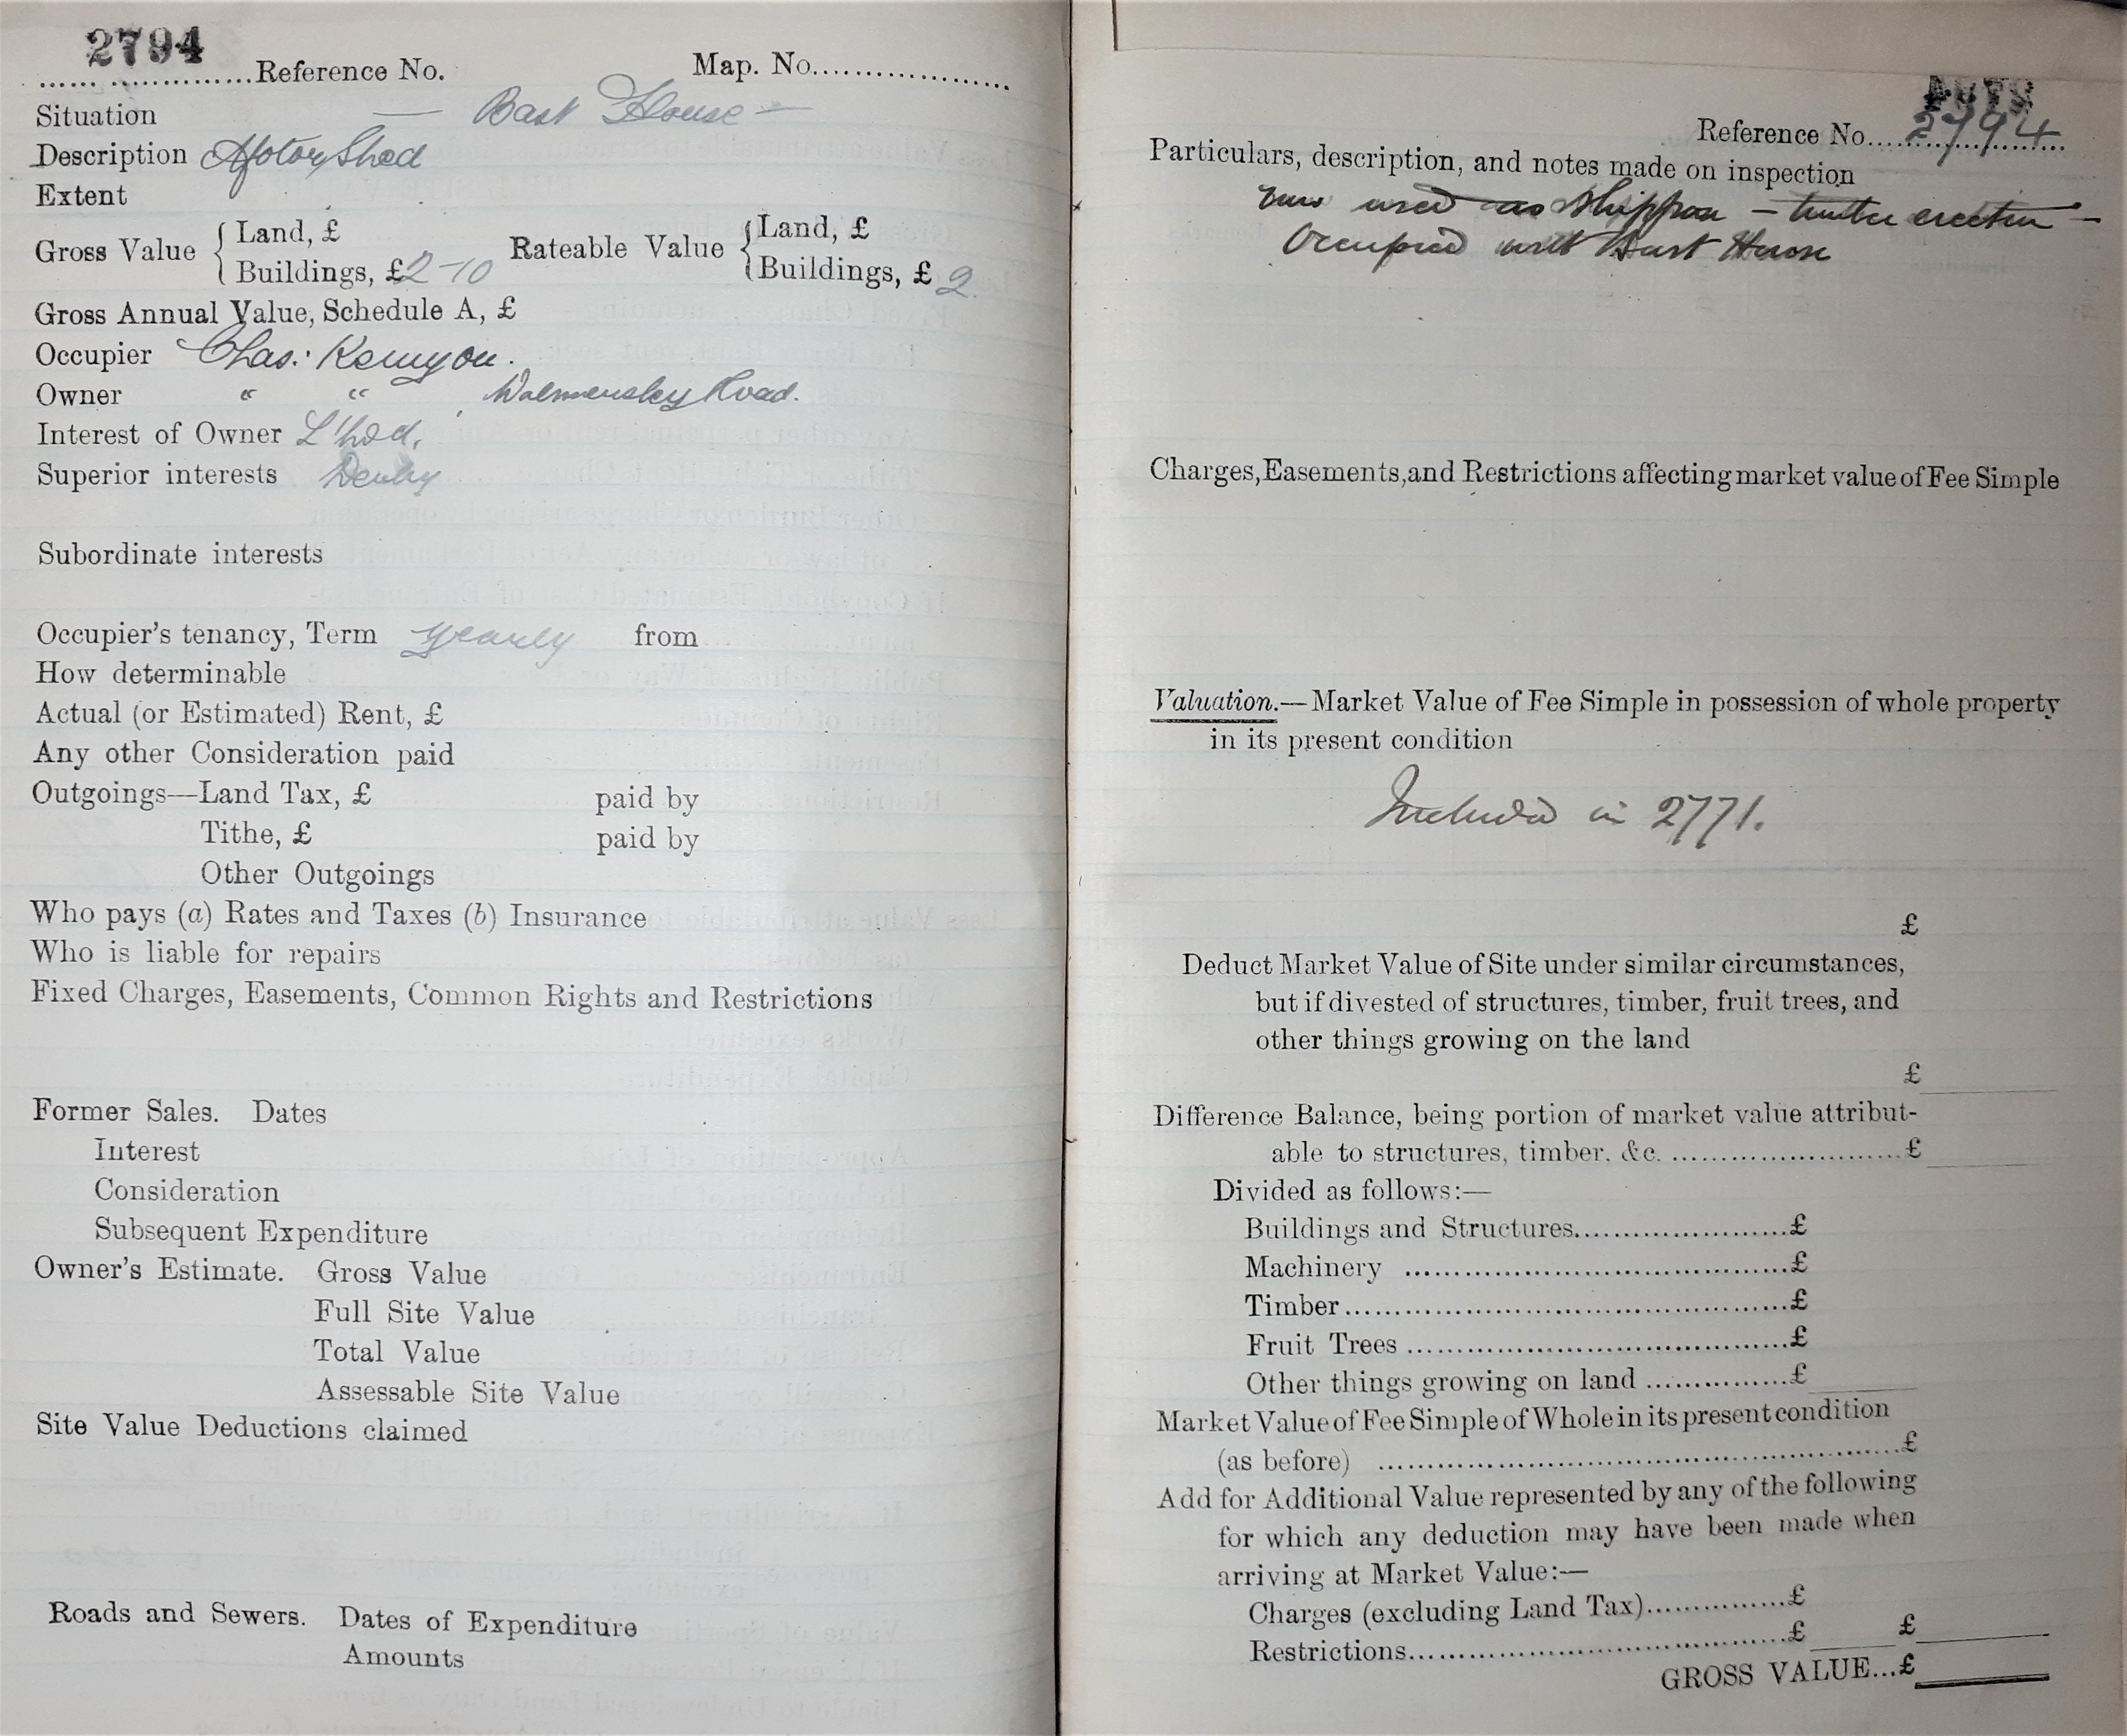 2794
Reference No. Map. No.
Situation — Bast House —
Description Motor Shed
Extent
Gross Value { Land, £
Buildings, £ 2-10
Rateable Value { Land, £
Buildings, £ 2.
Gross Annual Value, Schedule A, £
Occupier Chas: Kenyon.
Owner " " Walmersley Road.
Interest of Owner L'hod.
Superior interests Derby
Subordinate interests
Occupier's tenancy, Term yearly from
How determinable
Actual (or Estimated) Rent, £
Any other Consideration paid
Outgoings—Land Tax, £ paid by
Tithe, £ paid by
Other Outgoings
Who pays (a) Rates and Taxes (b) Insurance
Who is liable for repairs
Fixed Charges, Easements, Common Rights and Restrictions
Former Sales. Dates
Interest
Consideration
Subsequent Expenditure
Owner's Estimate. Gross Value
Full Site Value
Total Value
Assessable Site Value
Site Value Deductions claimed
Roads and Sewers. Dates of Expenditure
Amounts
Reference No. 2794
Particulars, description, and notes made on inspection
now used as Shippon — timber erection —
Occupied with Bast House
Charges, Easements, and Restrictions affecting market value of Fee Simple
Valuation.—Market Value of Fee Simple in possession of whole property
in its present condition
Included in 2771.
£
Deduct Market Value of Site under similar circumstances,
but if divested of structures, timber, fruit trees, and
other things growing on the land
£
Difference Balance, being portion of market value attribut-
able to structures, timber, &c. £
Divided as follows:—
Buildings and Structures £
Machinery £
Timber £
Fruit Trees £
Other things growing on land £
Market Value of Fee Simple of Whole in its present condition
(as before) £
Add for Additional Value represented by any of the following
for which any deduction may have been made when
arriving at Market Value:—
Charges (excluding Land Tax) £
Restrictions £ £
GROSS VALUE...£